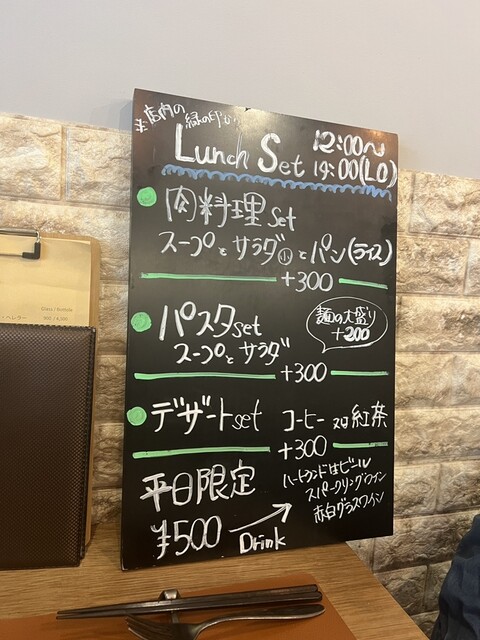 ※店内の
緑の印から
Lunch Set 12:00~
14:00(LO)
肉料理set
スープとサラダ(小)とパン(ライス)
+300
パスタset
スープとサラダ
麺の大盛り
+200
+300
デザートset コーヒー 又は 紅茶
+300
平日限定
¥500 → Drink
ハートランド生ビール
スパークリングワイン
赤白グラスワイン
Glass / Bottle